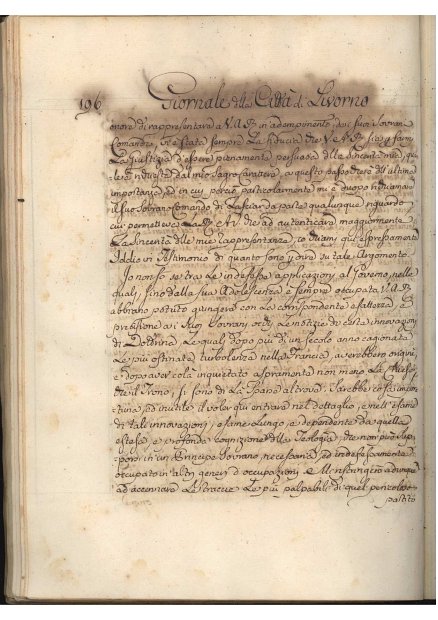 196 Giornale della Città di Livorno
onore di rappresentare a V.A.R. in adempimento de' suoi Sovrani
Comandi. Ed è stata sempre La fiducia che V.A.R. sia per farmi
La giustizia d'essere pienamente persuasa della sincerità mia, quale
indusse dal mio Sagro Carattere, a questo passo dirò dell'ultima
importanza, ed in cui perciò particolarmente mi è duopo richiamare
il suo Sovrano Comando di Lasciar da parte qualunque riguardo
ciò permettere La R.A.V. che ad autenticare maggiormente
La Sincerità delle mie rappresentanze, io chiami qui espressamente
Iddio in Testimonio di quanto sono per dire su tale Argomento.
Io non so se tra Le indefesse applicazioni al Governo, nelle
quali fino dalla sua Adolescenza è sempre occupata V.A.R.
abbiano potuto giungere con La corrispondente esattezza, e
precisione a i Suoi Sovrani occhi Le notizie di certa innovazione
di Dottrina Le quali dopo più di un secolo anno cagionate
Le più ostinate turbolenze nella Francia, e averebbero origine
e dopo aver colà inquietato aspramente non meno La Chiesa
che il Trono, si sono di La sparse altrove. Sarebbe cosa importuna
ed inutile il voler qui entrare nel dettaglio, e nell'esame
di tali innovazioni, esame Lungo, e dipendente da quella
estesa, e profonda cognizione della Teologia, che non può supporsi
in un Principe Sovrano, necessaria, ed indefessamente
occupato in altri generi d'occupazioni. E Mi ristringerò adunque
ad accennare Le tracce Le più palpabili di quel pericoloso
partito